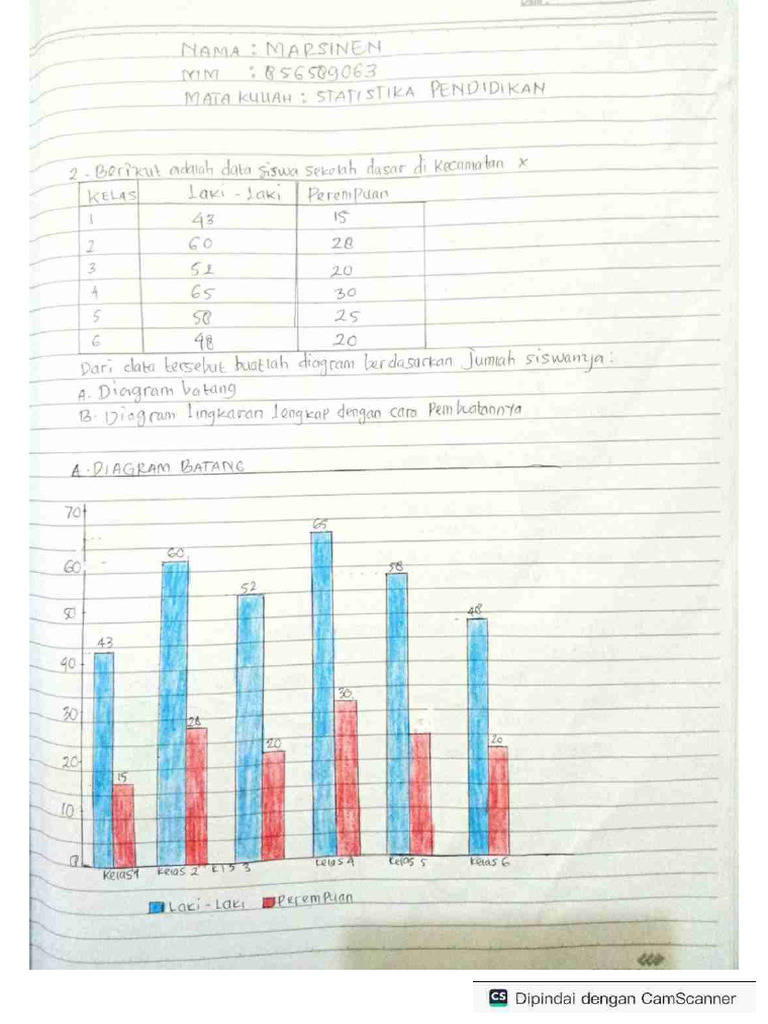 NAMA : MARSINEN
NIM : 856589063
MATA KULIAH : STATISTIKA PENDIDIKAN
2. Berikut adalah data siswa sekolah dasar di kecamatan x
KELAS Laki - Laki Perempuan
1 43 15
2 60 28
3 52 20
4 65 30
5 58 25
6 48 20
Dari data tersebut buatlah diagram berdasarkan Jumlah siswanya :
A. Diagram batang
B. Diagram lingkaran lengkap dengan cara Pembuatannya
A. DIAGRAM BATANG
70
60
50
40
30
20
10
0
43 15
60 28
52 20
65 30
58
48 20
Kelas 1 Kelas 2 Kls 3 Kelas 4 Kelas 5 Kelas 6
Laki - Laki Perempuan
CS Dipindai dengan CamScanner